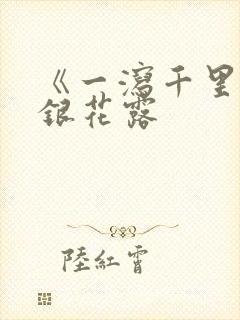 《一瀉千里
銀花露
陸紅霄